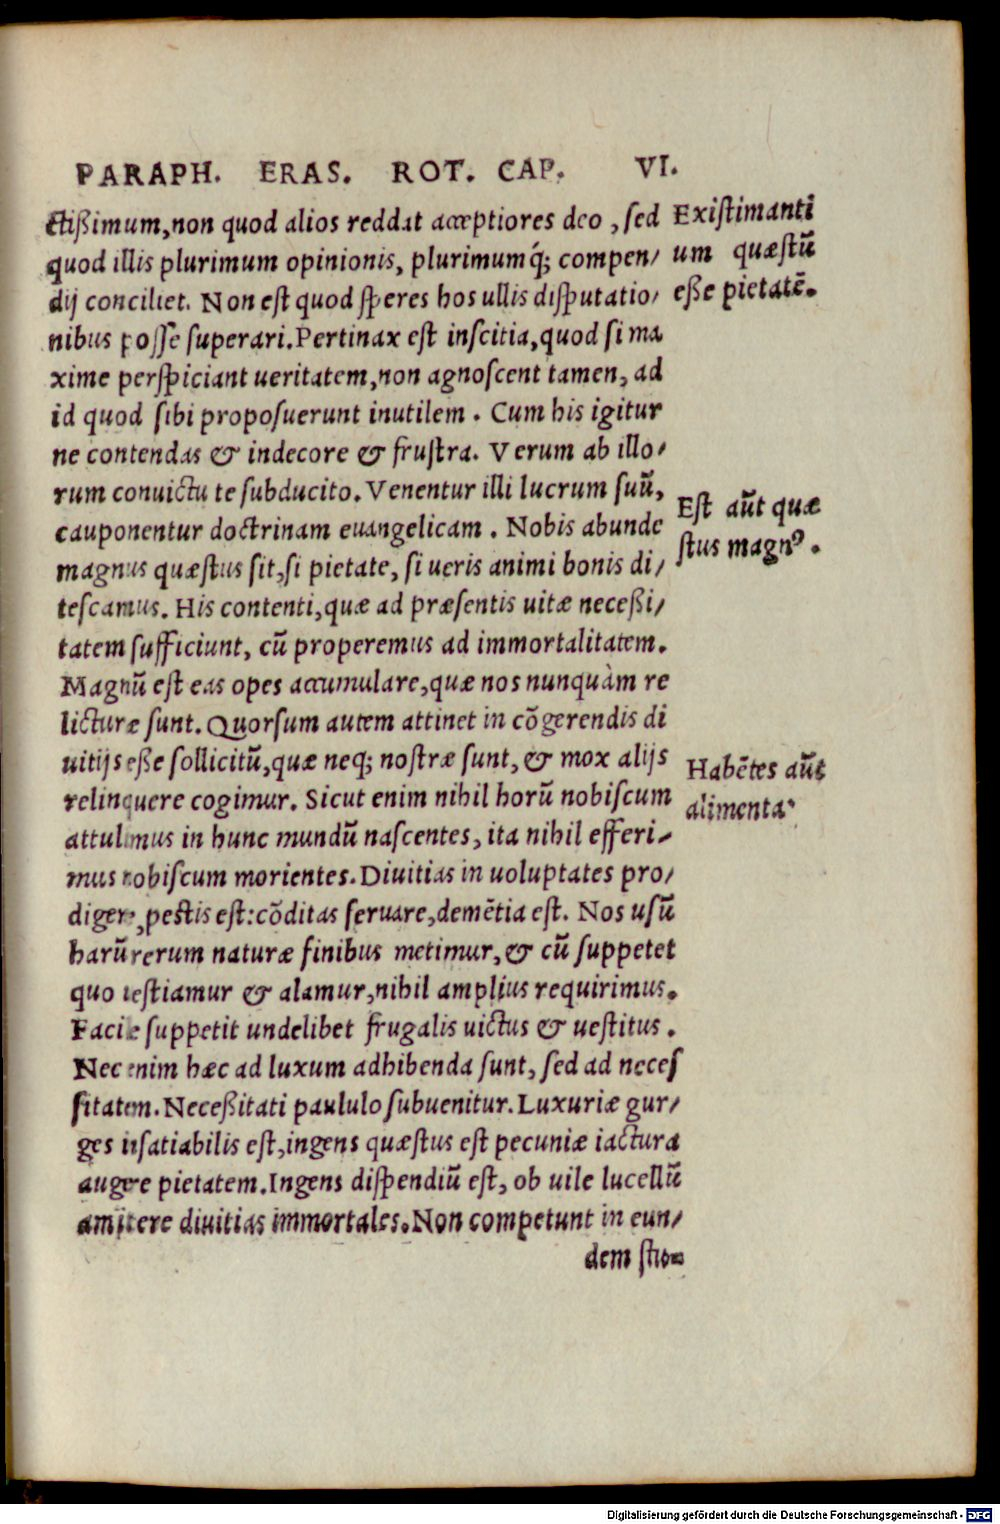 PARAPH. ERAS. ROT. CAP. VI.
ctißimum, non quod alios reddat acceptiores deo, sed
quod illis plurimum opinionis, plurimumq́; compen/
dij conciliet. Non est quod speres hos ullis disputatio/
nibus posse superari. Pertinax est inscitia, quod si ma
xime perspiciant ueritatem, non agnoscent tamen, ad
id quod sibi proposuerunt inutilem. Cum his igitur
ne contendas & indecore & frustra. Verum ab illo/
rum conuictu te subducito. Venentur illi lucrum suũ,
cauponentur doctrinam euangelicam. Nobis abunde
magnus quæstus sit, si pietate, si ueris animi bonis di/
tescamus. His contenti, quæ ad præsentis uitæ neceßi/
tatem sufficiunt, cũ properemus ad immortalitatem.
Magnũ est eas opes accumulare, quæ nos nunquàm re
licturæ sunt. Quorsum autem attinet in cõgerendis di
uitijs eße sollicitũ, quæ neq; nostræ sunt, & mox alijs
relinquere cogimur. Sicut enim nihil horũ nobiscum
attulimus in hunc mundũ nascentes, ita nihil efferi/
mus nobiscum morientes. Diuitias in uoluptates pro/
digere, pestis est: cõditas seruare, demẽtia est. Nos usũ
harũ rerum naturæ finibus metimur, & cũ suppetet
quo uestiamur & alamur, nihil amplius requirimus.
Facile suppetit undelibet frugalis uictus & uestitus.
Nec enim hæc ad luxum adhibenda sunt, sed ad neces
sitatem. Neceßitati paululo subuenitur. Luxuriæ gur/
ges insatiabilis est, ingens quæstus est pecuniæ iactura
augere pietatem. Ingens dispendiũ est, ob uile lucellũ
amittere diuitias immortales. Non competunt in eun/
dem stu-
Existimanti
um quæstũ
eße pietatẽ.
Est aũt quæ
stus magnꝰ.
Habẽtes aũt
alimenta
Digitalisierung gefördert durch die Deutsche Forschungsgemeinschaft - DFG